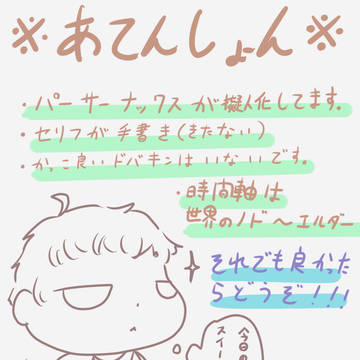 ※あてんしょん※
・パーサーナックスが擬人化してます。
・セリフが手書き(きたない)
・かっこ良いドバキンはいないです。
・時間軸は
世界のノド〜エルダー
それでも良かった
らどうぞ!!!
今日の
スイー